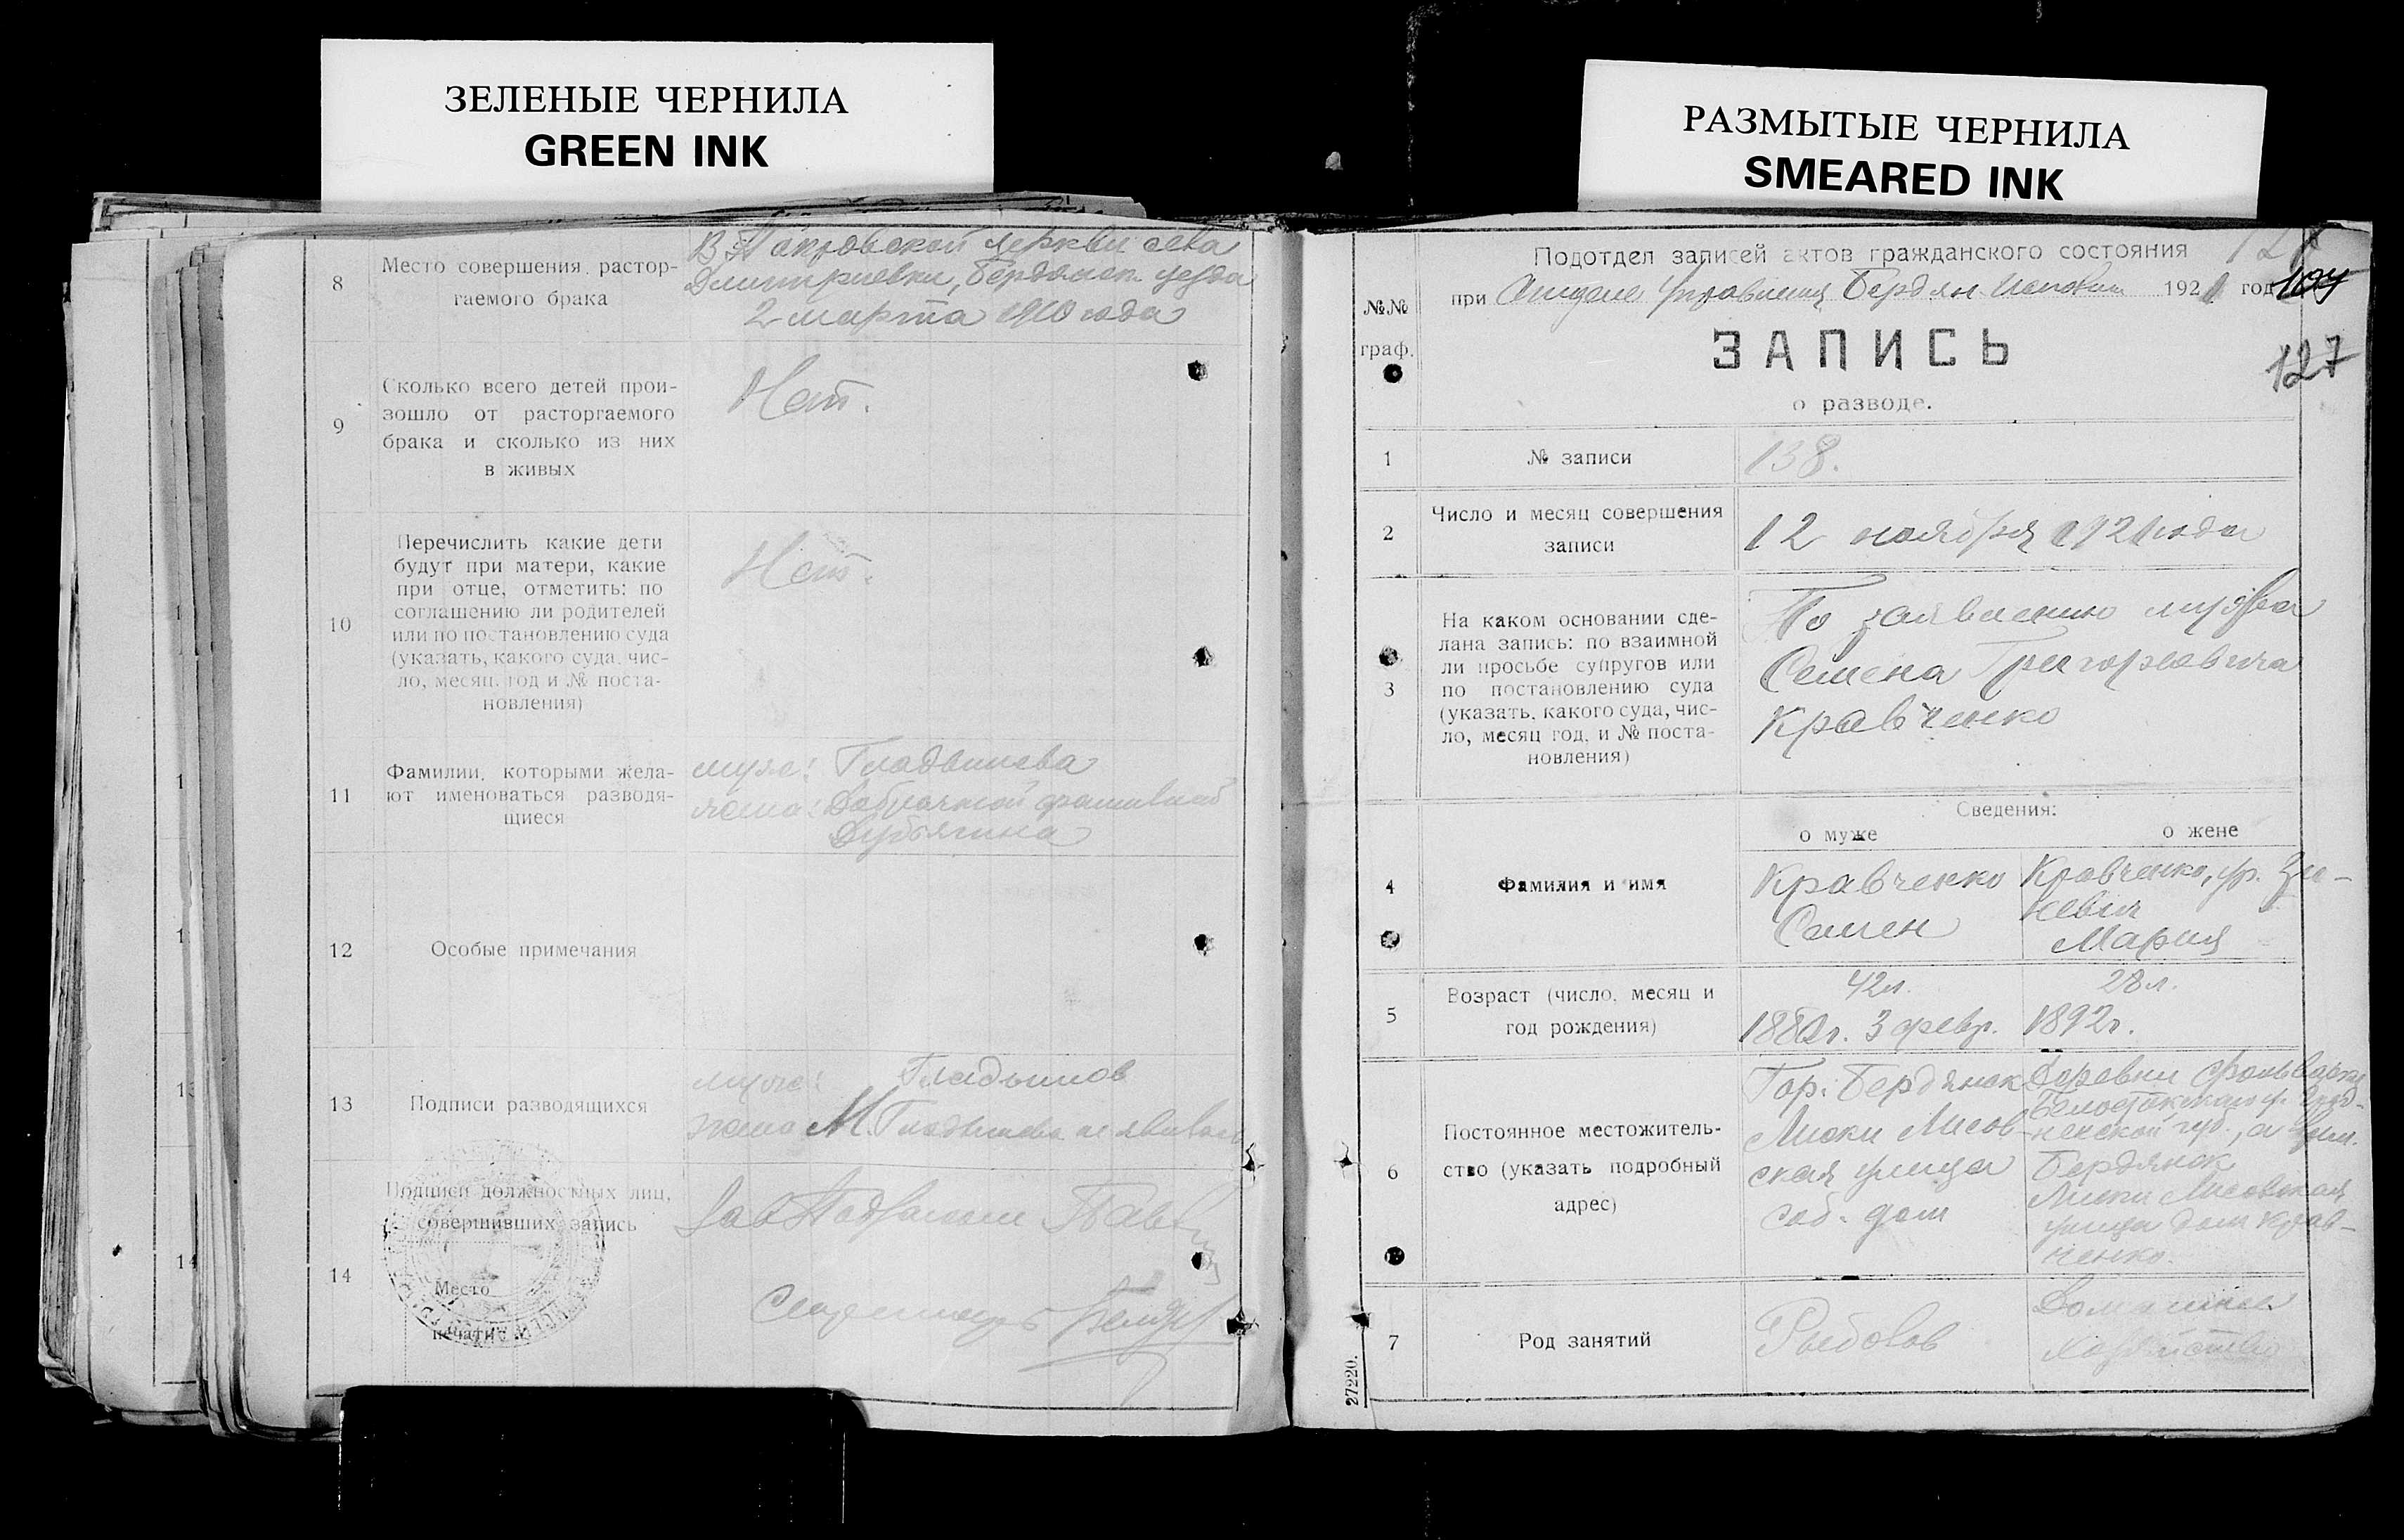 ЗЕЛЕНЫЕ ЧЕРНИЛА
GREEN INK
РАЗМЫТЫЕ ЧЕРНИЛА
SMEARED INK
8
Место совершения растор-
гаемого брака
В Покровской церкви села
Дмитриевки, Бердянск. уезда
2 марта 1910 года
9
Сколько всего детей прои-
зошло от расторгаемого
брака и сколько из них
в живых
Нет.
10
Перечислить какие дети
будут при матери, какие
при отце, отметить: по
соглашению ли родителей
или по постановлению суда
(указать, какого суда, чис-
ло, месяц, год и № поста-
новления)
Нет.
11
Фамилии, которыми жела-
ют именоваться разводя-
щиеся
муж: Гладышева
жена: Добрачной фамилией
12
Особые примечания
13
Подписи разводящихся
муж: Гладышов
жена М. Гладышева не явилась
14
Подписи должностных лиц,
совершивших запись
Место
печати
Секретарь
Подотдел записей актов гражданского состояния
при Отделе Управления Бердян. Исполком 1921 год
№№
граф.
ЗАПИСЬ
о разводе.
127
1
№ записи
138.
2
Число и месяц совершения
записи
12 ноября 1921 года
3
На каком основании сде-
лана запись: по взаимной
ли просьбе супругов или
по постановлению суда
(указать, какого суда, чис-
ло, месяц год, и № поста-
новления)
По заявлению мужа
Семена Григорьевича
Кравченко
Сведения:
о муже
о жене
4
Фамилия и имя
Кравченко
Семен
Кравченко, ур. Зи-
невич
Мария
5
Возраст (число, месяц и
год рождения)
42 л.
3 февр.
28 л.
1892 г.
6
Постоянное местожитель-
ство (указать подробный
адрес)
Гор. Бердянск
Лиски Лисов-
ская улица
соб. дом
Деревни
Бердянск
Лиски Лисовская
улица дом Крав-
ченко.
7
Род занятий
Рыболов
Домашнее
хозяйство
27220.